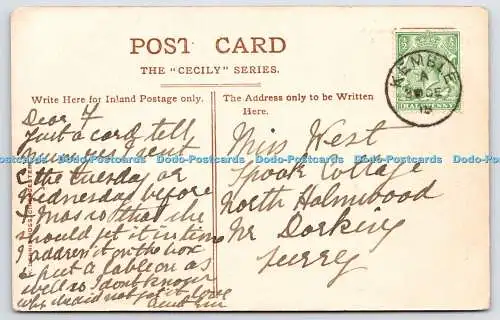 POST CARD
THE "CECILY" SERIES.
Write Here for Inland Postage only.
The Address only to be Written
Here.
KEMBLE
A
DE
13
HALFPENNY
Dear F
Just a card tell
Mum yes I sent
the Tuesday or
Wednesday before
Xmas so that she
should get it in time
I address it on the box
& put a lable on as
well so I dont know
why she did not get it love
Miss West
Spook Cottage
North Holmwood
Nr Dorking
Surrey
Dodo-Postcards Dodo-Postcards Dodo-Postcards Dodo-Postcards Dodo-Postcards Dodo-Postcards